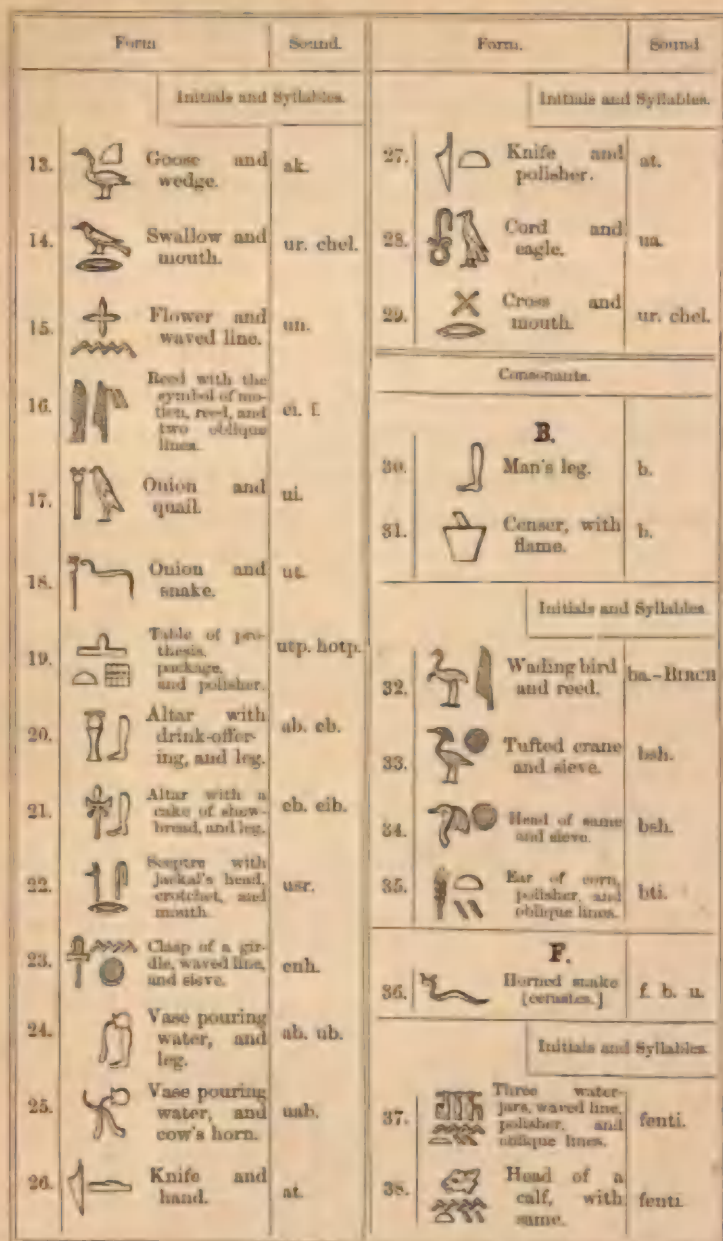 Form
Sound.
Initials and Syllables.
13. Goose and wedge. ak.
14. Swallow and mouth. ur. chel.
15. Flower and waved line. un.
16. Reed with the symbol of mo-
tion, reed, and two oblique lines. ei. f.
17. Onion and quail. ui.
18. Onion and snake. ut.
19. Table of pro-
thesis, package, and polisher. utp. hotp.
20. Altar with drink-offer-
ing, and leg. ab. eb.
21. Altar with a cake of shew-
bread, and leg. eb. eib.
22. Sceptre with jackal's head, crotchet, and mouth. usr.
23. Clasp of a gir-
dle, waved line, and sieve. enh.
24. Vase pouring water, and leg. ab. ub.
25. Vase pouring water, and cow's horn. uab.
26. Knife and hand. at.
Form.
Sound
Initials and Syllables.
27. Knife and polisher. at.
28. Cord and eagle. ua.
29. Cross and mouth. ur. chel.
Consonants.
B.
30. Man's leg. b.
31. Censer, with flame. b.
Initials and Syllables.
32. Wading bird and reed. ba.-BIRCH
33. Tufted crane and sieve. bsh.
34. Head of same and sieve. bsh.
35. Ear of corn, polisher, and oblique lines. bti.
F.
36. Horned snake [cerastes.] f. b. u.
Initials and Syllables.
37. Three water-
jars, waved line, polisher, and oblique lines. fenti.
38. Head of a calf, with same. fenti.